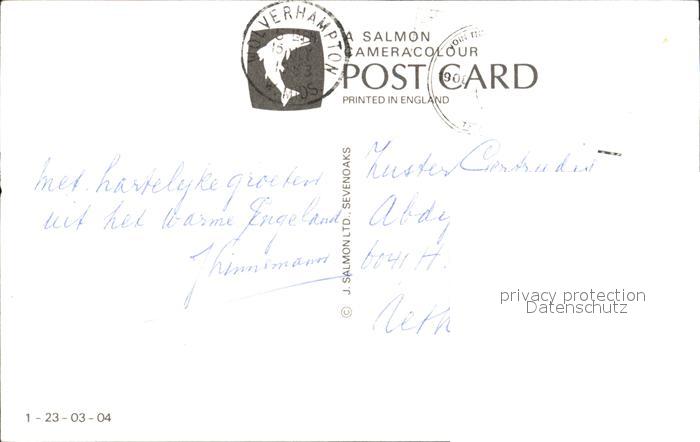 WOLVERHAMPTON
A SALMON
CAMERACOLOUR
POST CARD
PRINTED IN ENGLAND
Met hartelyke groeten
uit het warme Engeland
© J. SALMON LTD., SEVENOAKS
Zuster Gertrudis
Abdy
6041 H
Neth
privacy protection
Datenschutz
1-23-03-04